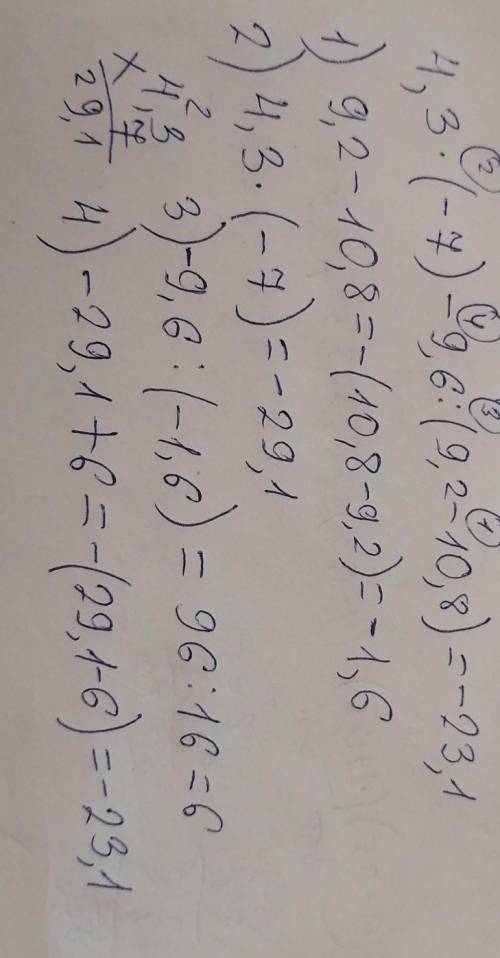 4,3·(-7)-9,6:(9,2-10,8)=-23,1
1) 9,2-10,8=-(10,8-9,2)=-1,6
2) 4,3·(-7)=-29,1
3) -9,6:(-1,6)=96:16=6
4) -29,1+6=-(29,1-6)=-23,1
2
4,3
×
7
29,1